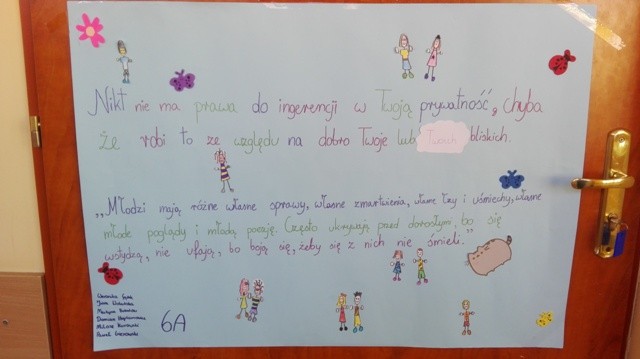 Nikt nie ma prawa do ingerencji w Twoją prywatność, chyba
że robi to ze względu na dobro Twoje lub Twoich bliskich.
„Młodzi mają różne własne sprawy, własne zmartwienia, własne łzy i uśmiechy, własne
młode poglądy i młodą poezję. Często ukrywają przed dorosłymi, bo się
wstydzą, nie ufają, bo boją się, żeby się z nich nie śmieli."
6A